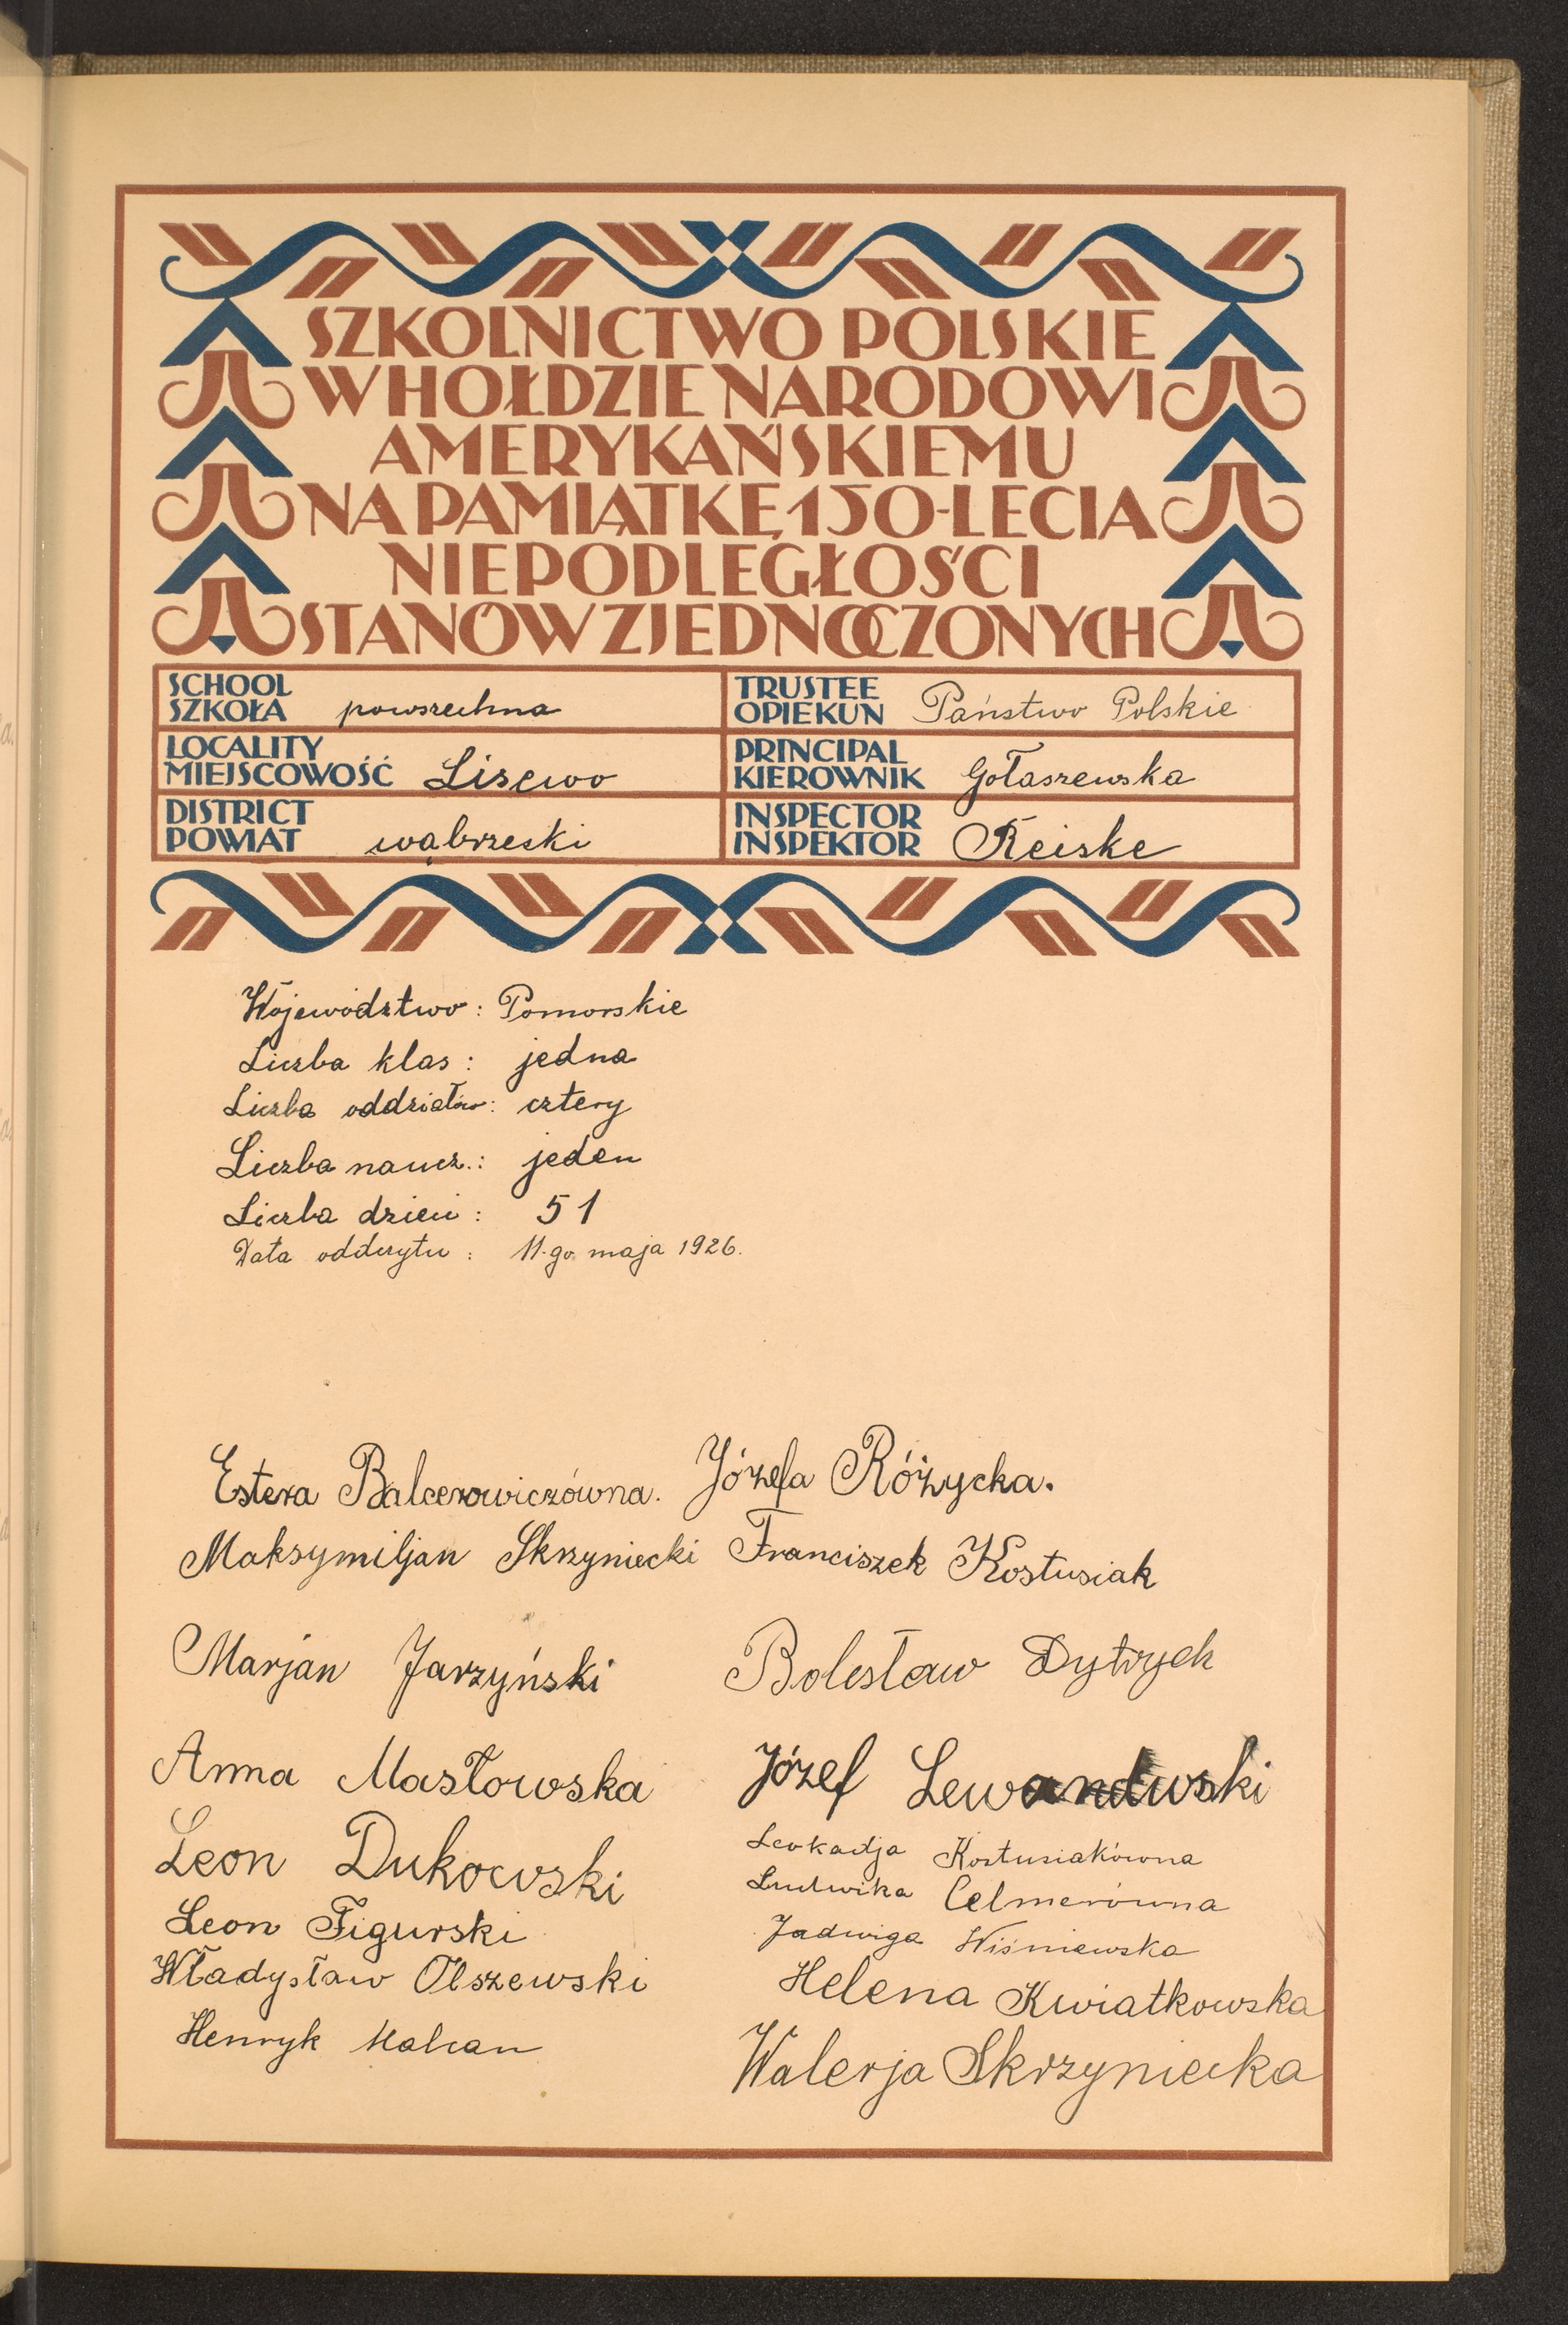 SZKOLNICTWO POLSKIE
W HOŁDZIE NARODOWI
AMERYKAŃSKIEMU
NA PAMIĄTKĘ 150-LECIA
NIEPODLEGŁOŚCI
STANÓW ZJEDNOCZONYCH
SCHOOL
SZKOŁA powszechna
TRUSTEE
OPIEKUN Państwo Polskie
LOCALITY
MIEJSCOWOŚĆ Lisewo
PRINCIPAL
KIEROWNIK Gołaszewska
DISTRICT
POWIAT wąbrzeski
INSPECTOR
INSPEKTOR Reiske
Województwo: Pomorskie
Liczba klas: jedna
Liczba oddziałów: cztery
Liczba naucz.: jeden
Liczba dzieci: 51
Data odczytu: 11-go maja 1926.
Estera Balcerowiczówna. Józefa Różycka.
Maksymiljan Skrzyniecki Franciszek Kostusiak
Marjan Jarzyński Bolesław Dytrych
Anna Masłowska Józef Lewandwski
Leon Dukowski Leokadja Kostusiakówna
Ludwika Celmerówna
Leon Figurski Jadwiga Wiśniewska
Władysław Olszewski Helena Kwiatkowska
Henryk Walerja Skrzyniecka